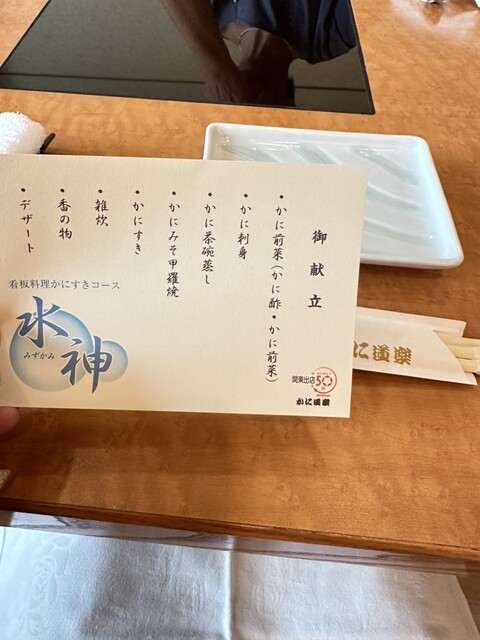 御献立
・かに前菜(かに酢・かに前菜)
・かに刺身
・かに茶碗蒸し
・かにみそ甲羅焼
・かにすき
・雑炊
・香の物
・デザート
看板料理かにすきコース
水神
みずかみ
関東出店
50
かに道楽
に道楽